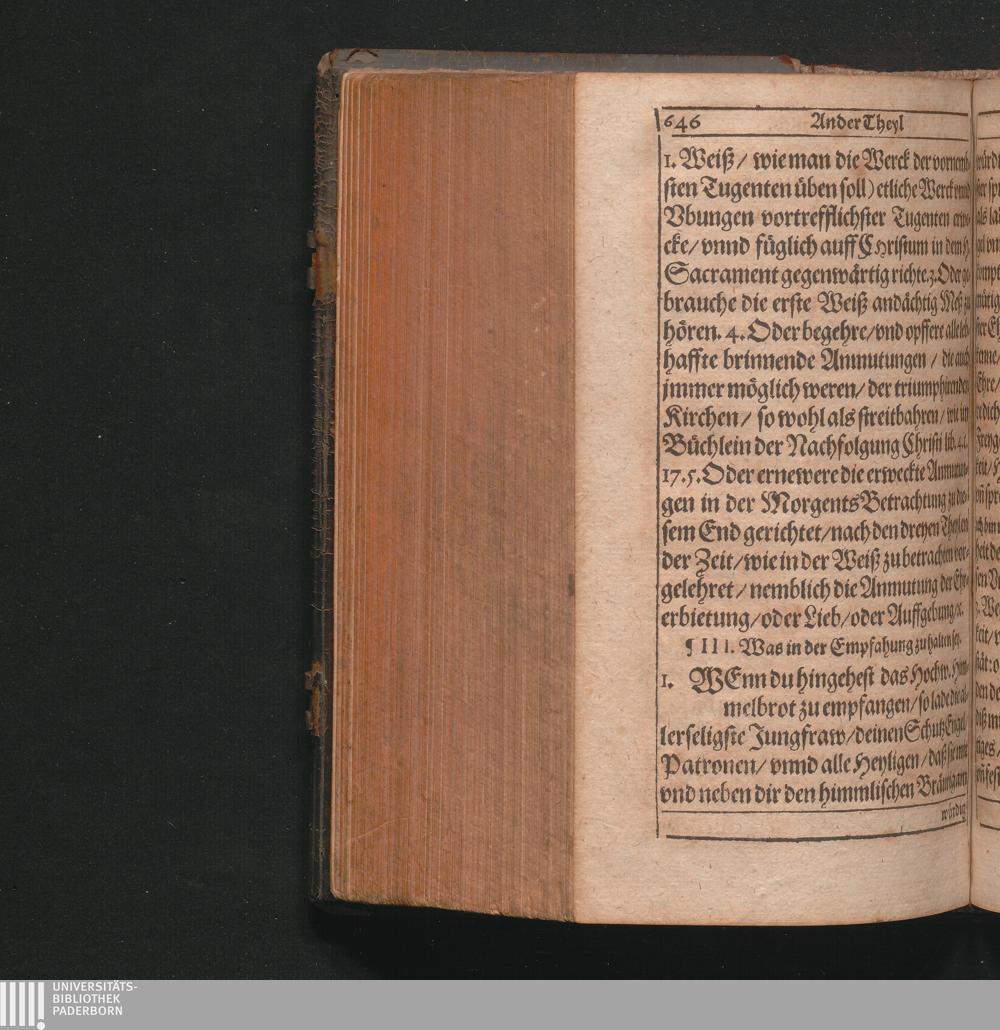 646 Ander Theyl
1. Weiß / wie man die Werck der vornemb-
sten Tugenten üben soll) etliche Werck vnnd
Vbungen vortrefflichster Tugenten erwe-
cke / vnnd füglich auff Christum in dem H.
Sacrament gegenwärtig richte. 3. Oder ge-
brauche die erste Weiß andächtig Meß zu
hören. 4. Oder begehre / vnd opffere alle leb-
haffte brinnende Anmutungen / die auch
jmmer möglich weren / der triumphirenden
Kirchen / so wohl als streitbahren / wie im
Büchlein der Nachfolgung Christi lib. 4. c.
17. 5. Oder ernewere die erweckte Anmutun-
gen in der Morgents Betrachtung zu die-
sem End gerichtet / nach den dreyen Theylen
der Zeit / wie in der Weiß zu betrachten vor-
gelehret / nemblich die Anmutung der Ehr-
erbietung / oder Lieb / oder Auffgebung / ꝛc.
¶ III. Was in der Empfahung zu halten sey.
1. WEnn du hingehest das Hochw. Him-
melbrot zu empfangen / so lade die al-
lerseligste Jungfraw / deinen Schutz Engel /
Patronen / vnnd alle Heyligen / daß sie mit
vnd neben dir den himmlischen Bräutigam
würdig
UNIVERSITÄTS-
BIBLIOTHEK
PADERBORN